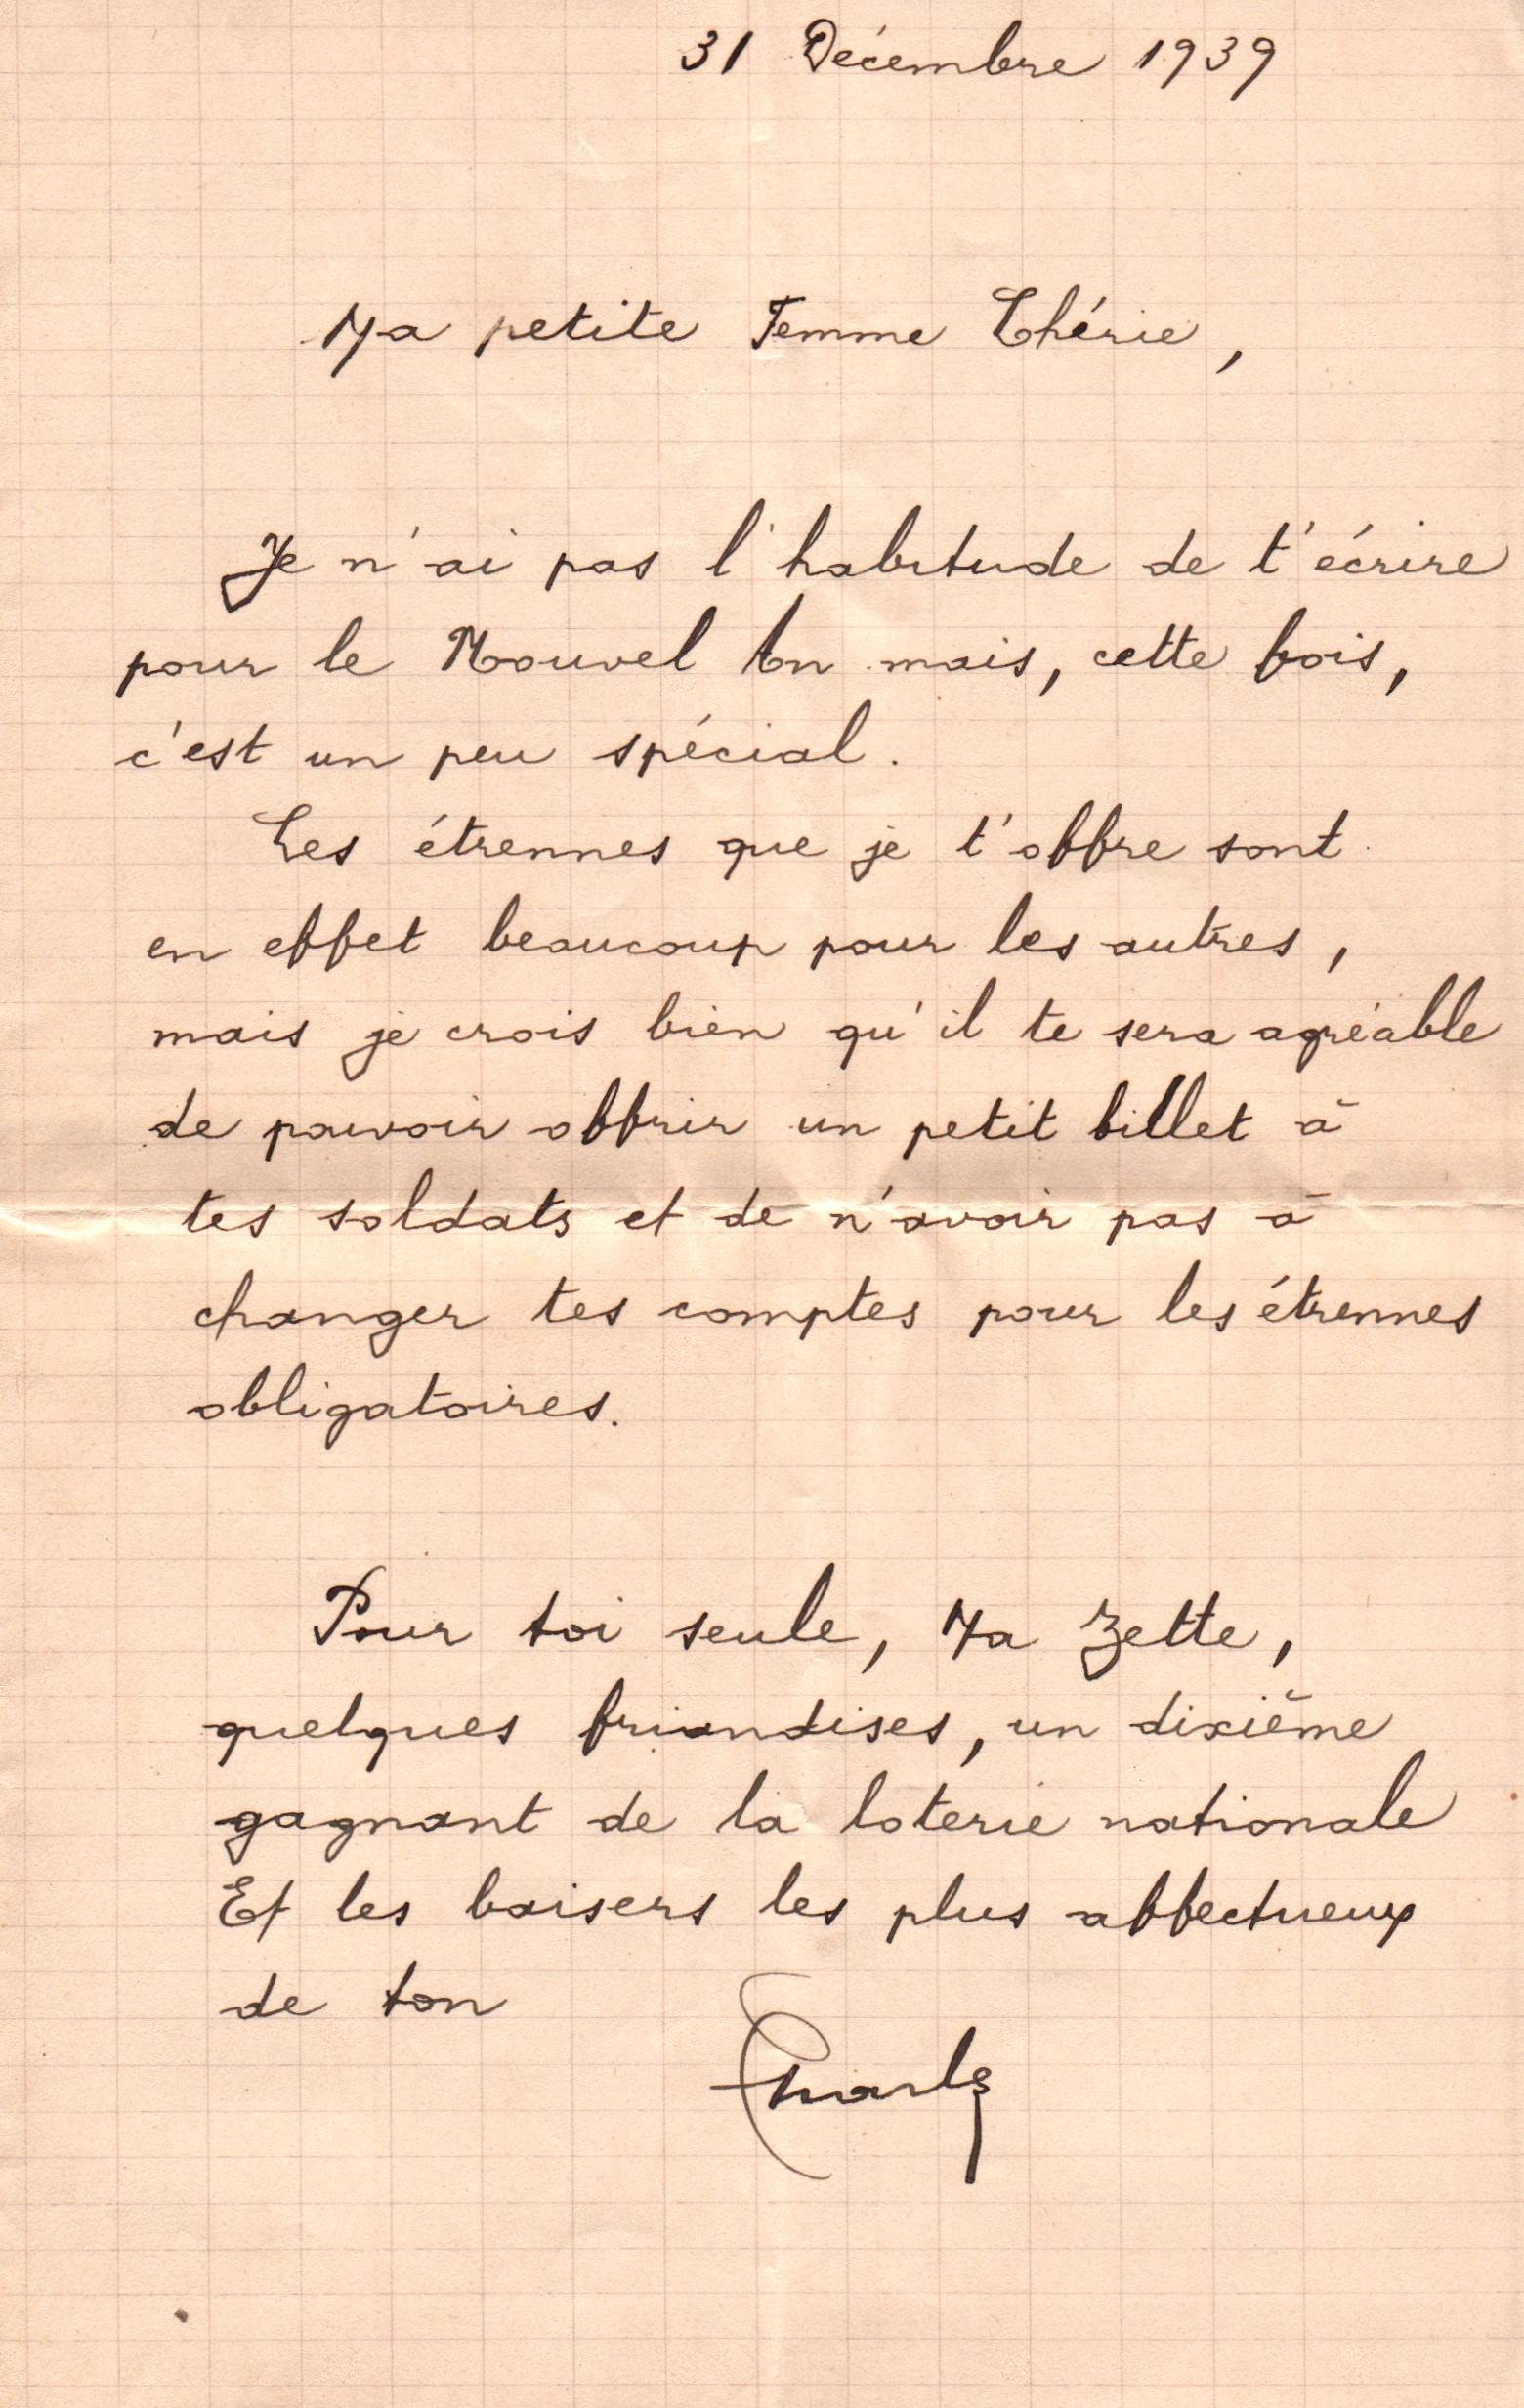 31 Décembre 1939
Ma petite Femme Chérie,
Je n'ai pas l'habitude de t'écrire
pour le Nouvel An mais, cette fois,
c'est un peu spécial.
Les étrennes que je t'offre sont
en effet beaucoup pour les autres,
mais je crois bien qu'il te sera agréable
de pouvoir offrir un petit billet à
tes soldats et de n'avoir pas à
changer tes comptes pour les étrennes
obligatoires.
Pour toi seule, Ma Zette,
quelques friandises, un dixième
gagnant de la loterie nationale
Et les baisers les plus affectueux
de ton
Charles